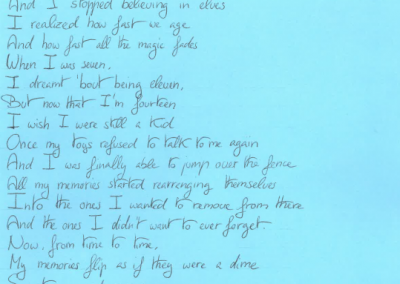 And I stopped believing in elves
I realized how fast we age
And how fast all the magic fades
When I was seven,
I dreamt 'bout being eleven,
But now that I'm fourteen
I wish I were still a kid
Once my toys refused to talk to me again
And I was finally able to jump over the fence
All my memories started rearranging themselves
Into the ones I wanted to remove from there
And the ones I didn't want to ever forget.
Now, from time to time,
My memories flip as if they were a dime